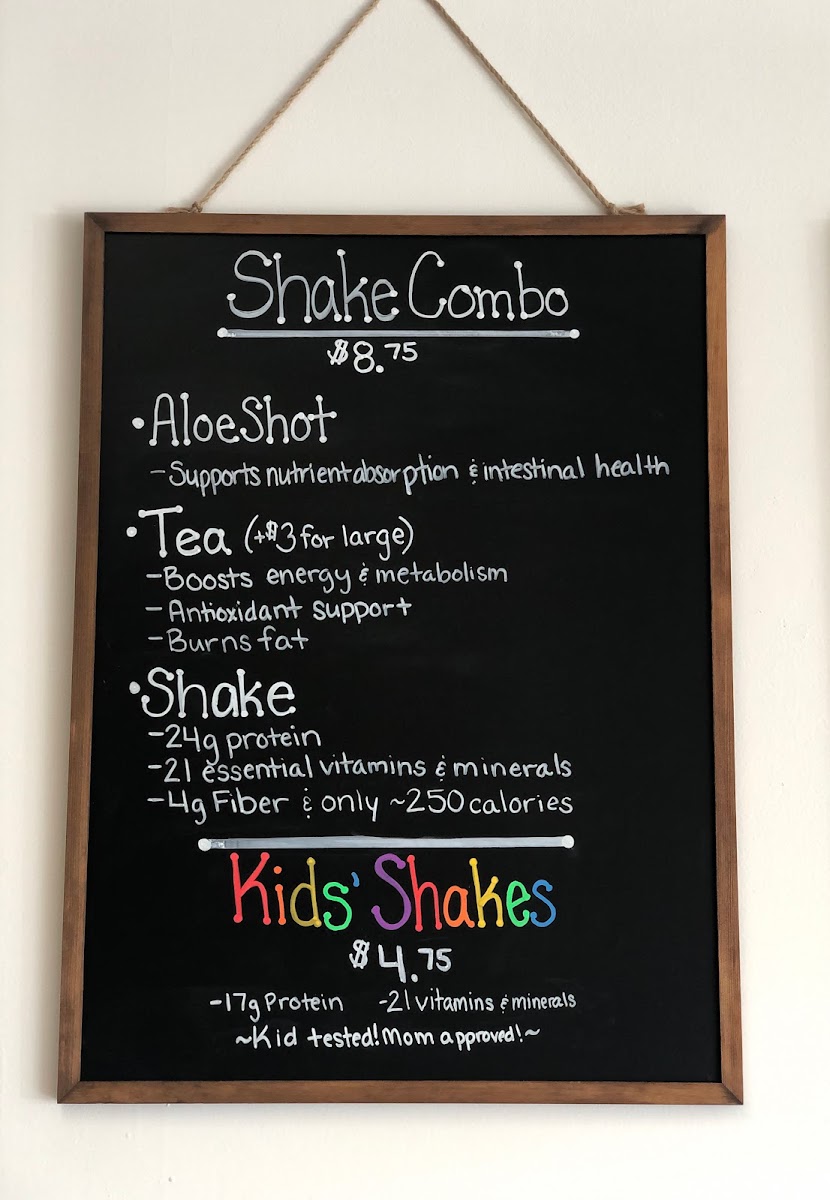 Shake Combo
$8.75
•Aloe Shot
-Supports nutrient absorption & intestinal health
•Tea (+$3 for large)
-Boosts energy & metabolism
-Antioxidant support
-Burns fat
•Shake
-24g protein
-21 essential vitamins & minerals
-4g Fiber & only ~250 calories
Kids' Shakes
$4.75
-17g Protein -21 vitamins & minerals
~Kid tested! Mom approved!~